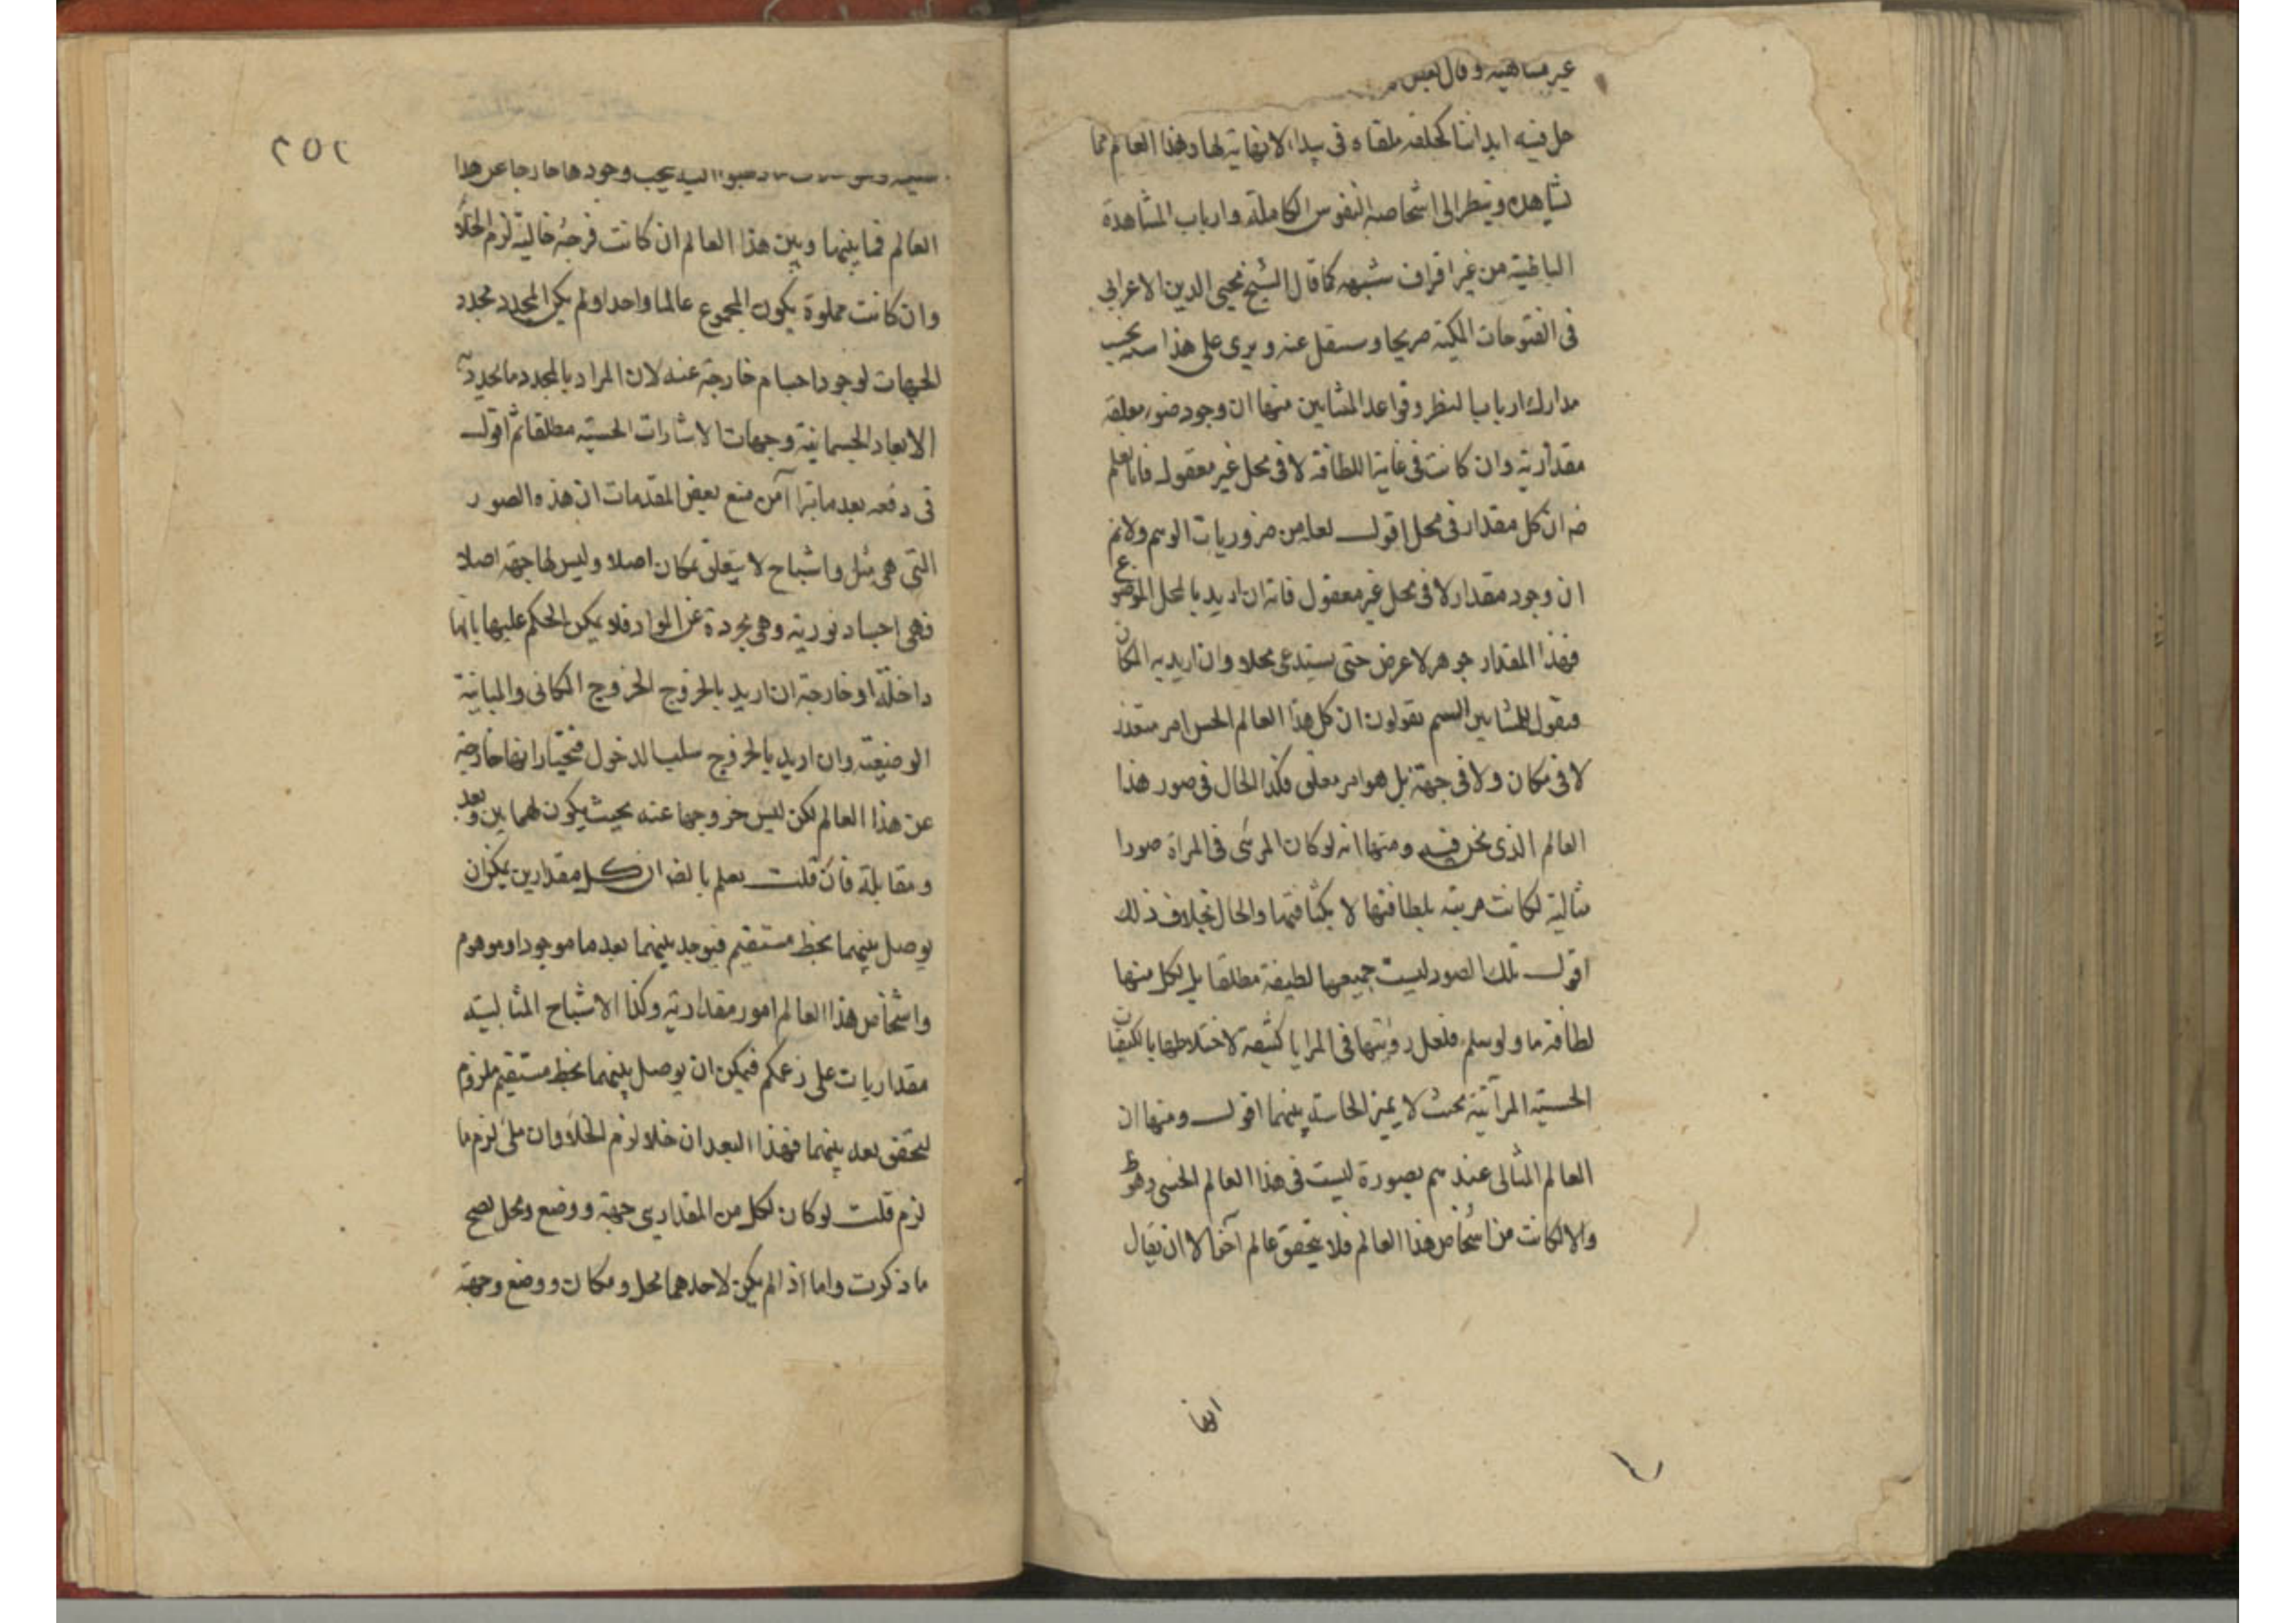 غير متناهية وقال بعض
حل فيه ابداننا كحلقة ملقاة في بيداء لا نهاية لها وهذا العالم مما
نشاهده وينظر الى اشخاصه النفوس الكاملة وارباب المشاهدة
الباطنية من غير اقراف شبهه كما قال الشيخ محيى الدين الاعرابي
في الفتوحات المكية صريحا وسننقل عنه ويرى على هذا بحسب
مدارك ارباب النظر وقواعد المشايين منها ان وجود صور معلقة
مقدارية وان كانت في غاية اللطافة لا في محل غير معقول فانا نعلم
ضه ان كل مقدار في محل اقول لعله من ضروريات الوهم ولانم
ان وجود مقدار لا في محل غير معقول فانه ان اريد بالمحل الموضوع
فهذا المقدار جوهر لا عرض حتى يستدعى محلا وان اريد به المكان
فنقول للمشايين الستم تقولون ان كل هذا العالم الحسى امر متقدر
لا في مكان ولا في جهة بل هو امر معلق فكذا الحال في صور هذا
العالم الذي نحن فيه ومنها انه لو كان المرئى في المراة صورا
مثالية لكانت مريية بلطافتها لا بكثافتها والحال بخلاف ذلك
اقول تلك الصور ليست جميعها لطيفة مطلقا بل لكل منها
لطافة ما ولو سلم فلعل رؤيتها في المرايا كثيفة لاختلاطها بالكيفيات
الحسية المرآتية بحيث لا يميز الحاسة بينهما اقول ومنها ان
العالم المثالى عندهم بصورة ليست في هذا العالم الحسى وهو ظ
والا لكانت من اشخاص هذا العالم فلا يتحقق عالم آخر الا ان يقال
انها
٢٥٢
يجب وجودها خارجا عن هذا
العالم فما بينها وبين هذا العالم ان كانت فرجة خالية لزم الخلأ
وان كانت مملوة يكون المجموع عالما واحدا ولم يكن المحدد محدد
الجهات لوجود اجسام خارجة عنه لان المراد بالمحدد ما تحدد به
الابعاد الجسمانية وجهات الاشارات الحسية مطلقا ثم اقول
في دفعه بعد ما تراآ من منع بعض المقدمات ان هذه الصور
التي هي مثل واشباح لا يتعلق بمكان اصلا وليس لها جهة اصلا
فهي اجساد نورية وهي مجردة عن المواد فلا يمكن الحكم عليها بانها
داخلة او خارجة ان اريد بالخروج الخروج المكاني والمباينة
الوضعية وان اريد بالخروج سلب الدخول فنختار انها خارجة
عن هذا العالم لكن ليس خروجها عنه بحيث يكون لهما بين وبعد
ومقابلة فان قلت نعلم بالضه ان كل مقدارين يمكن ان
يوصل بينهما بخط مستقيم فيوجد بينهما بعد ما موجود او موهوم
واشخاص هذا العالم امور مقدارية وكذا الاشباح المثالية
مقداريات على زعمكم فيمكن ان يوصل بينهما بخط مستقيم فلزم
تحقق بعد بينهما فهذا البعد ان خلا لزم الخلاء وان ملئ لزم ما
لزم قلت لو كان لكل من المقدارين جهة ووضع ومحل لصح
ما ذكرت واما اذا لم يكن لاحدهما محل ومكان ووضع وجهة